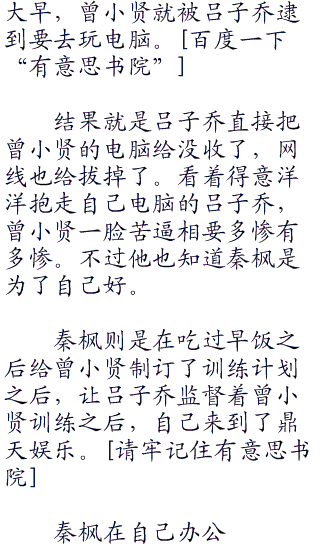 大早，曾小贤就被吕子乔逮
到要去玩电脑。[百度一下
“有意思书院”]
结果就是吕子乔直接把
曾小贤的电脑给没收了，网
线也给拔掉了。看着得意洋
洋抱走自己电脑的吕子乔，
曾小贤一脸苦逼相要多惨有
多惨。不过他也知道秦枫是
为了自己好。
秦枫则是在吃过早饭之
后给曾小贤制订了训练计划
之后，让吕子乔监督着曾小
贤训练之后，自己来到了鼎
天娱乐。[请牢记住有意思书
院]
秦枫在自己办公